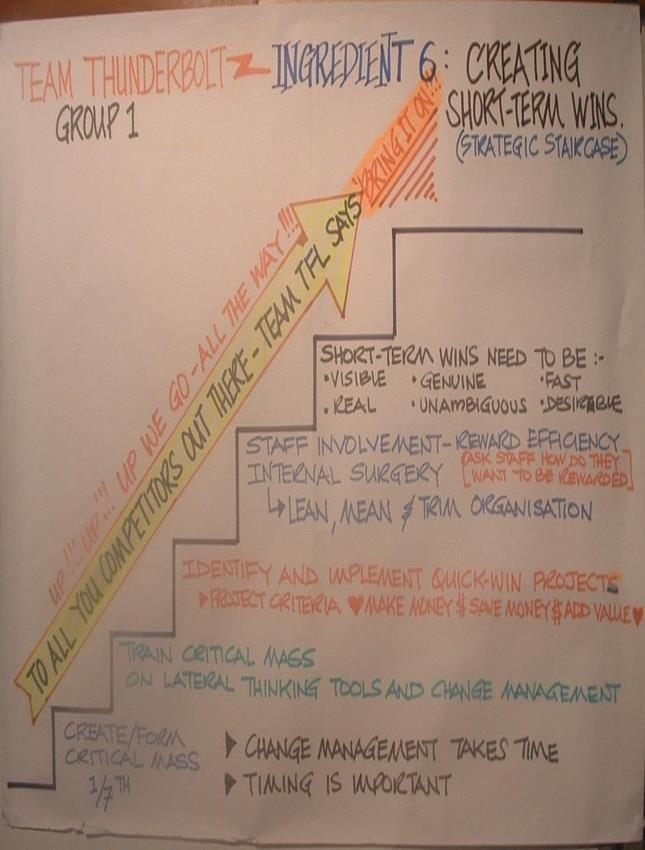 TEAM THUNDERBOLT INGREDIENT 6: CREATING
GROUP 1
SHORT-TERM WINS.
(STRATEGIC STAIRCASE)
"BRING IT ON!!!
UP!!! UP...!!! UP WE GO - ALL THE WAY!!!
TO ALL YOU COMPETITORS OUT THERE - TEAM TFL SAYS
SHORT-TERM WINS NEED TO BE :-
• VISIBLE • GENUINE • FAST
• REAL • UNAMBIGUOUS • DESIRABLE
STAFF INVOLVEMENT - REWARD EFFICIENCY
INTERNAL SURGERY [ASK STAFF HOW DO THEY
WANT TO BE REWARDED]
↳ LEAN, MEAN & TRIM ORGANISATION
IDENTIFY AND IMPLEMENT QUICK-WIN PROJECTS
▶ PROJECT CRITERIA ♥ MAKE MONEY $ SAVE MONEY $ ADD VALUE ♥
TRAIN CRITICAL MASS
ON LATERAL THINKING TOOLS AND CHANGE MANAGEMENT
CREATE/FORM
CRITICAL MASS
1/7TH
▶ CHANGE MANAGEMENT TAKES TIME
▶ TIMING IS IMPORTANT